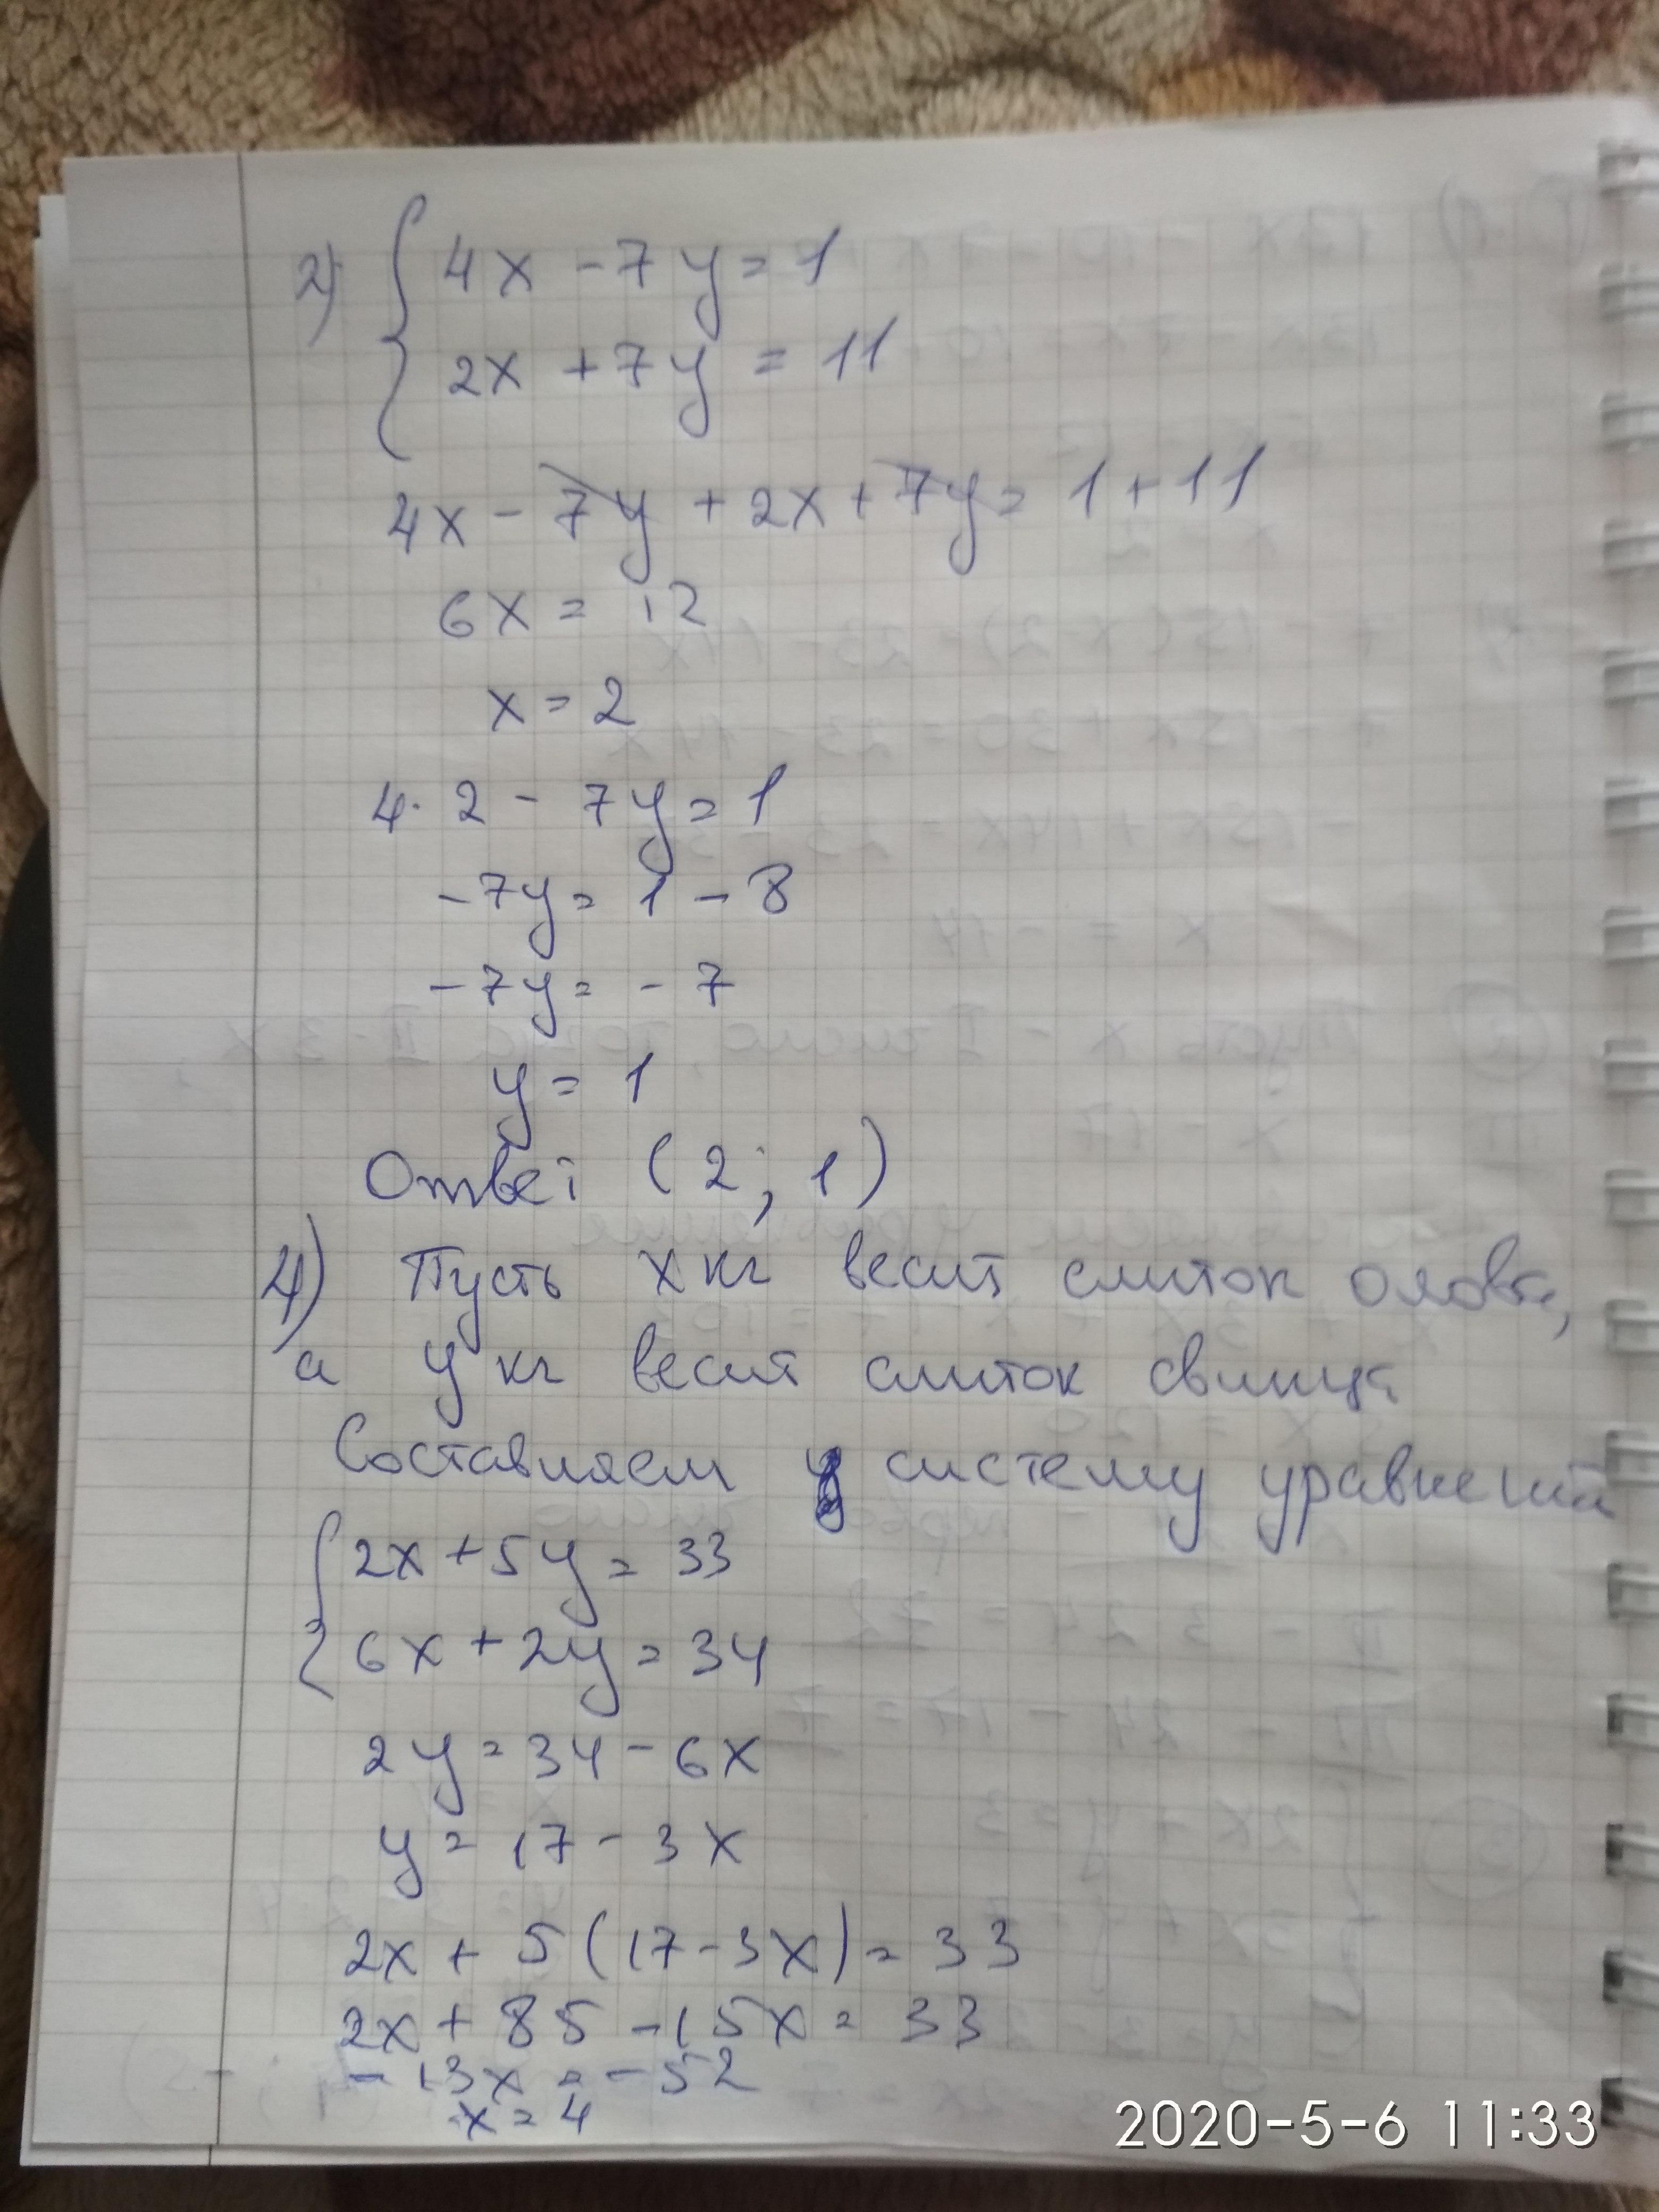 2) 4x - 7y = 1
2x + 7y = 11
4x - 7y + 2x + 7y = 1 + 11
6x = 12
x = 2
4 · 2 - 7y = 1
-7y = 1 - 8
-7y = -7
y = 1
Ответ (2; 1)
4) Пусть x кг весит слиток олова,
а y кг весит слиток свинца
Составляем систему уравнений
2x + 5y = 33
6x + 2y = 34
2y = 34 - 6x
y = 17 - 3x
2x + 5(17 - 3x) = 33
2x + 85 - 15x = 33
-13x = -52
x = 4
2020-5-6 11:33